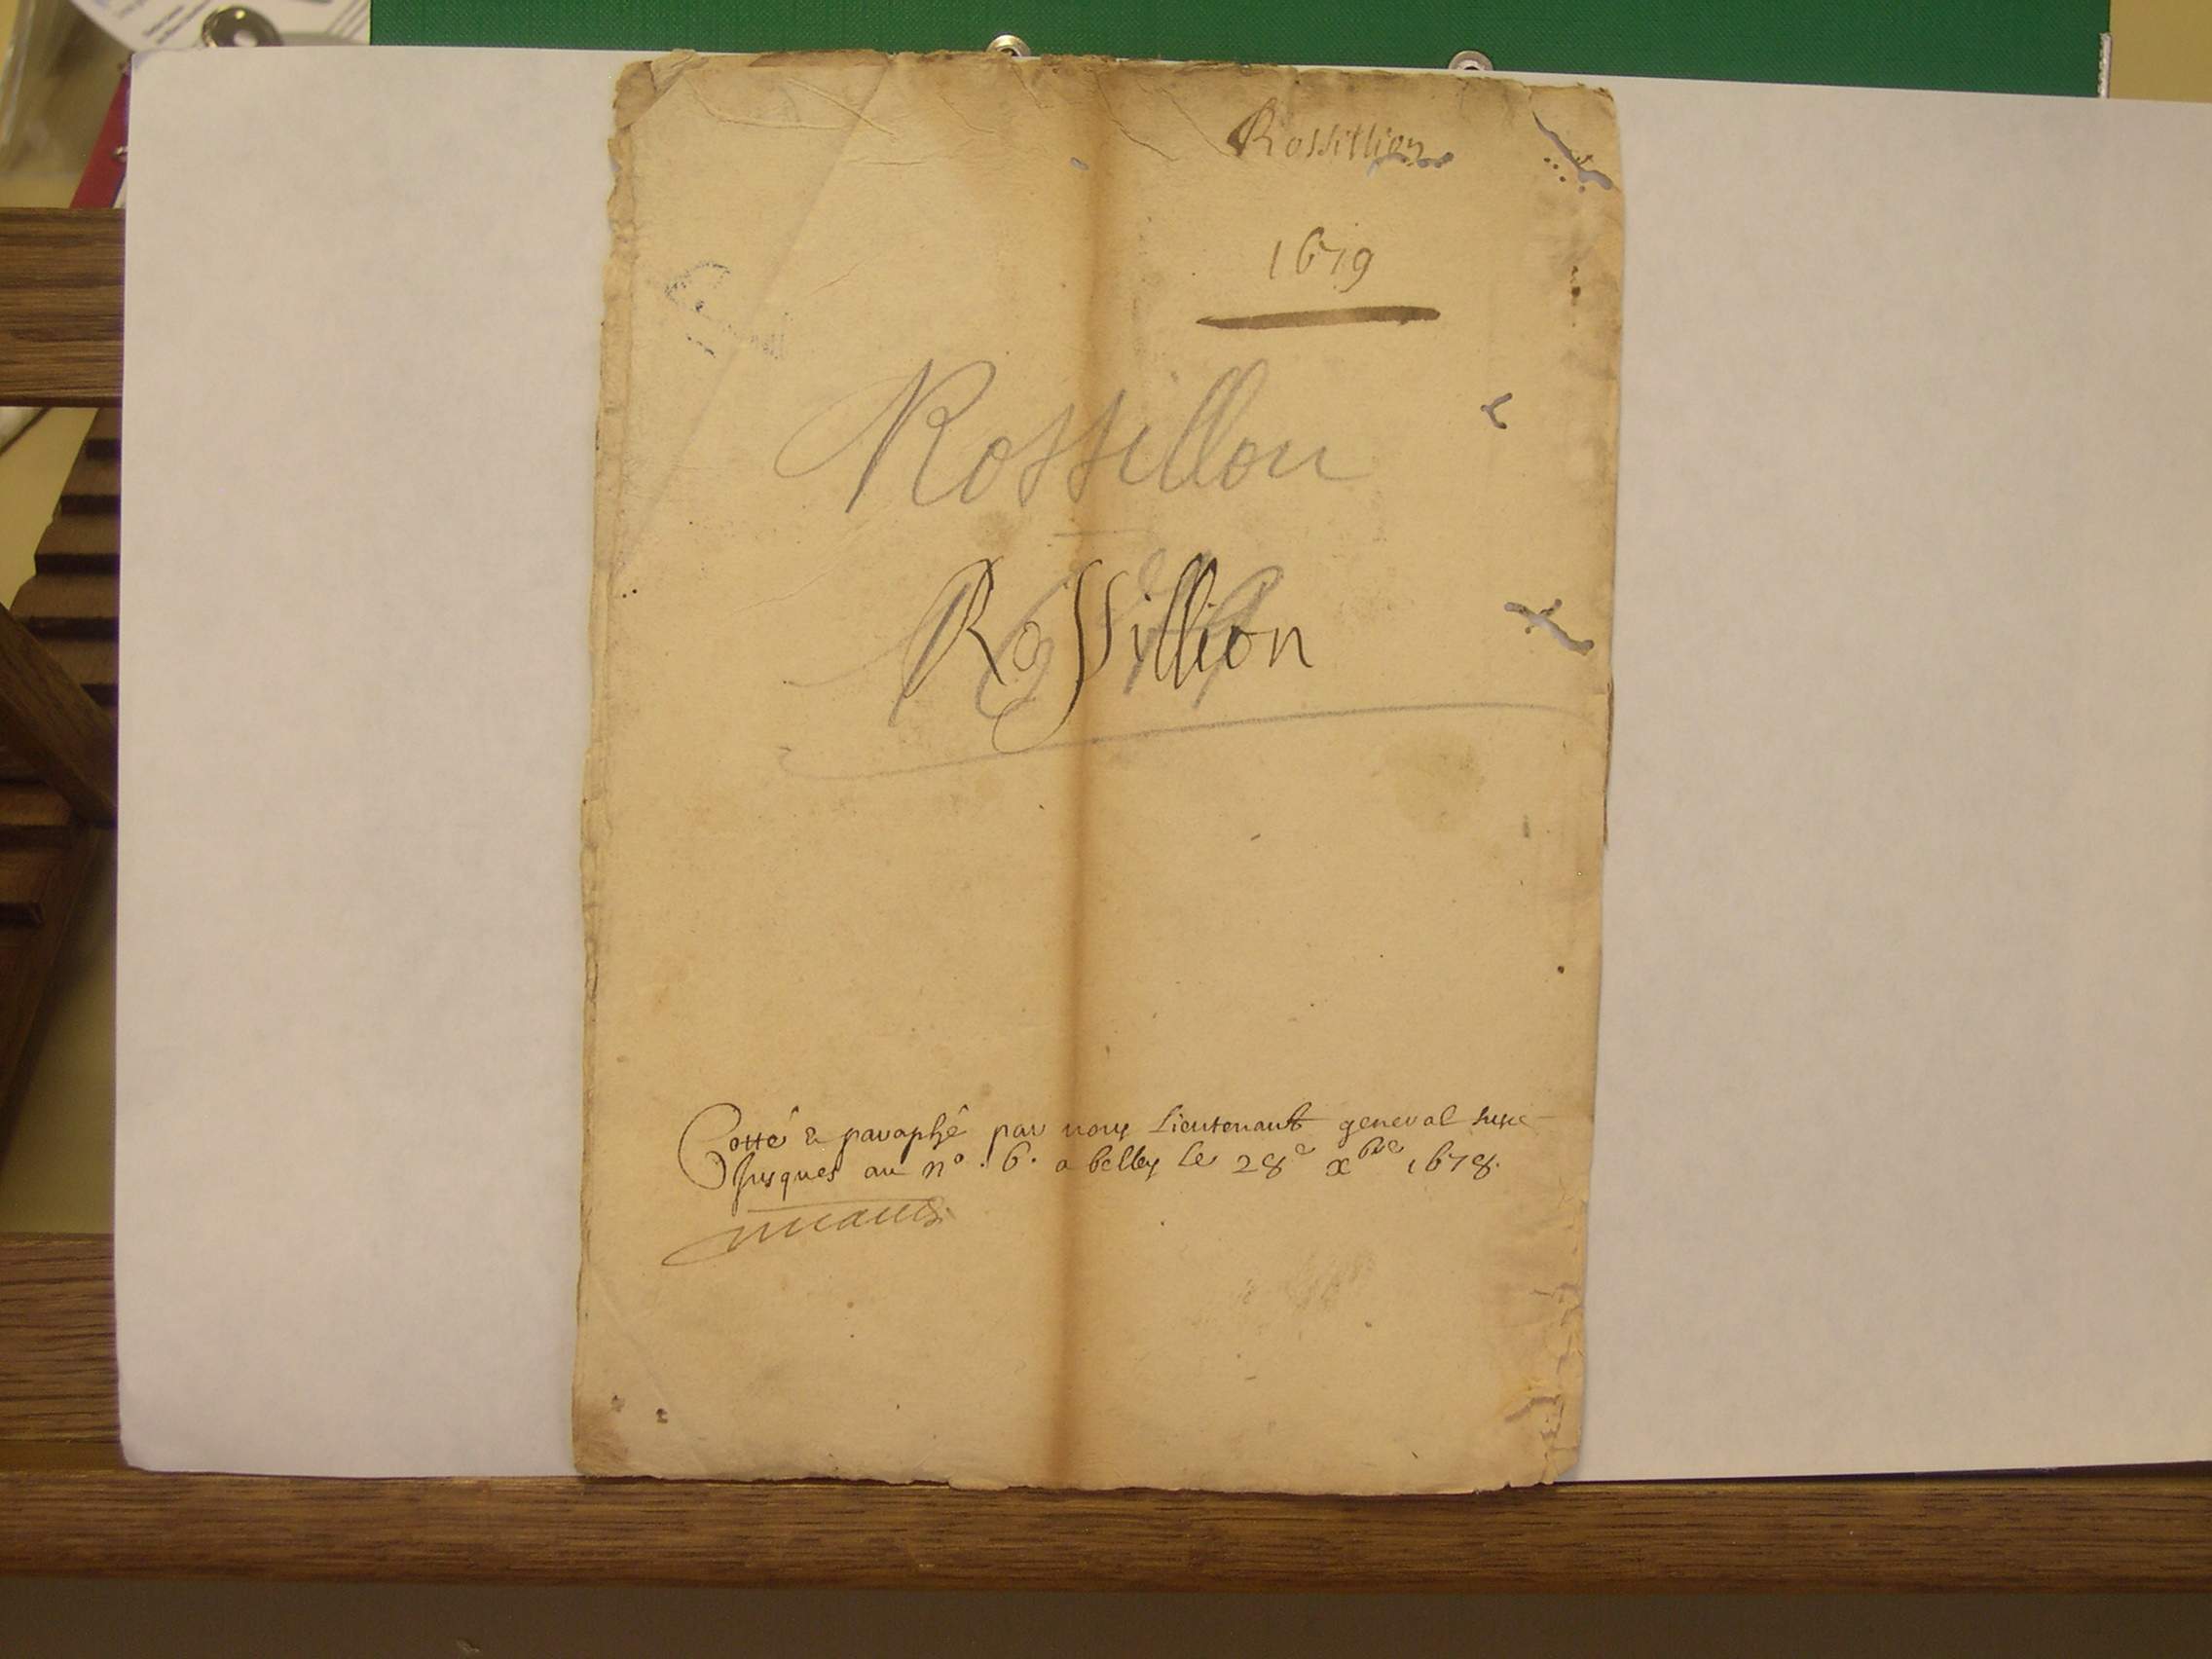 Rossillion
1679
Rossillon
1679
Rossillion
Cotté & paraphé par nous Lieutenant general
Jusques au n° . 6 . a belley le 28e xbre 1678.